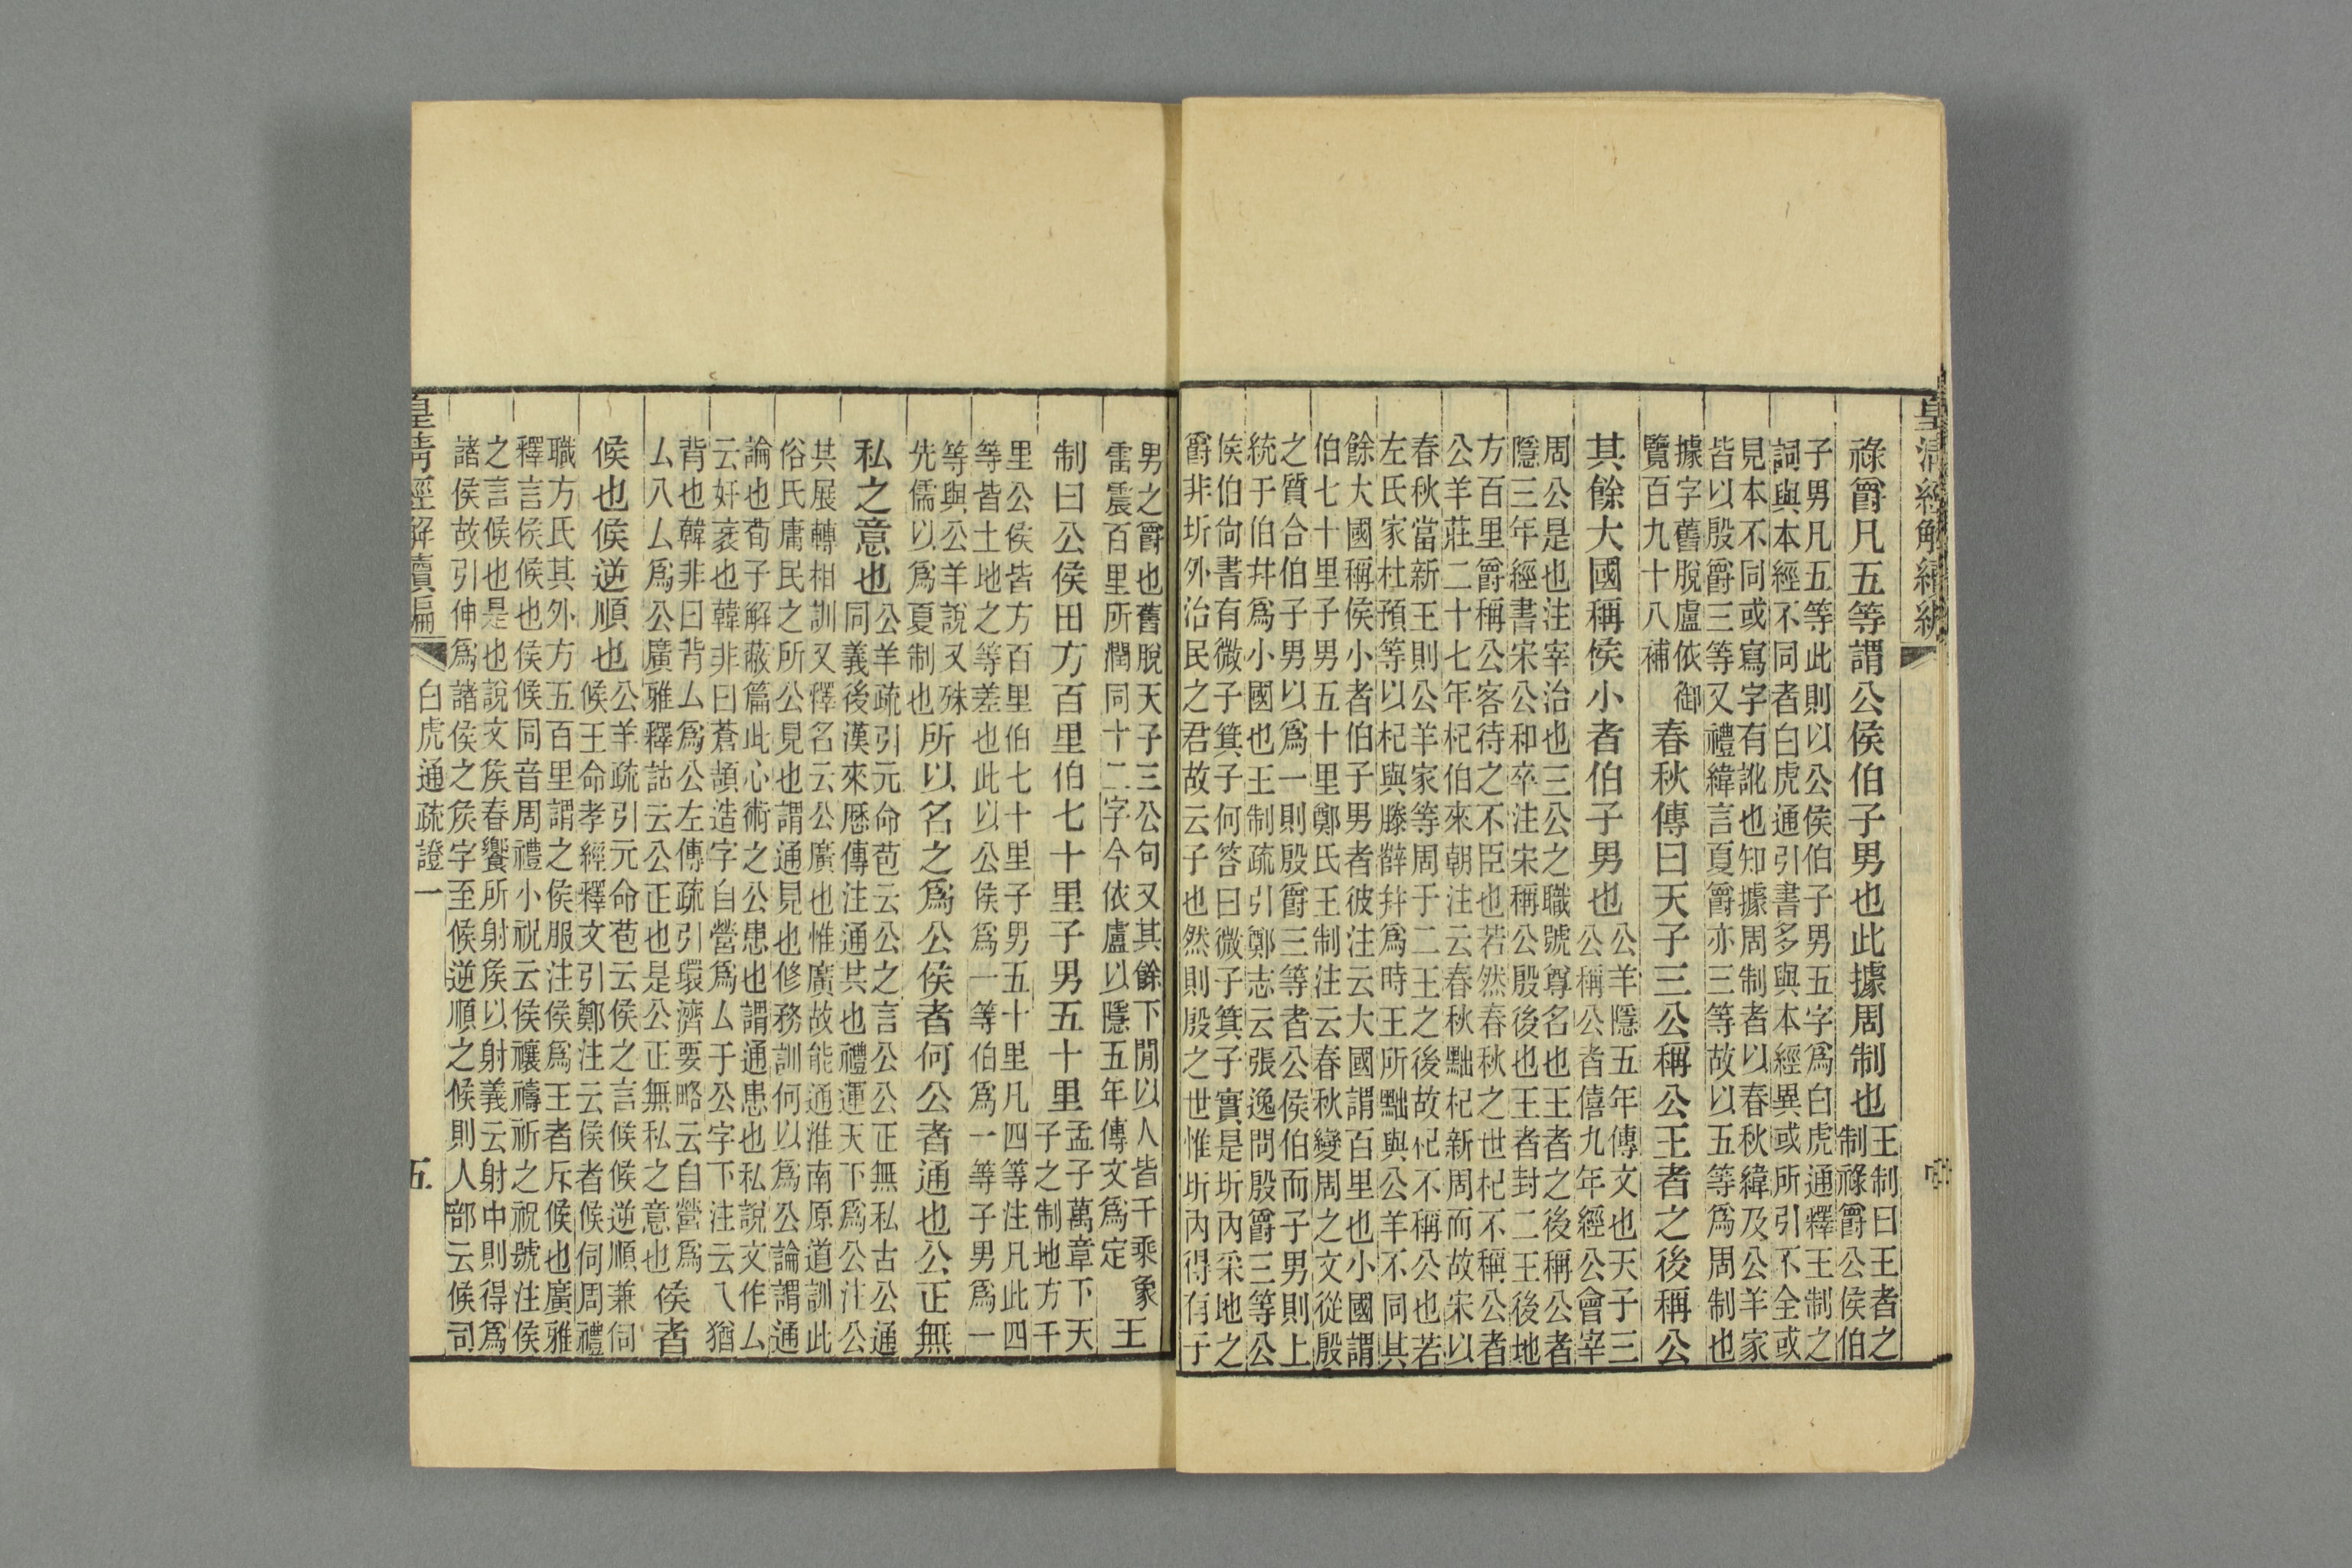 皇清經解續編
祿爵凡五等謂公侯伯子男也此據周制也王制曰王者之
制祿爵公侯伯
子男凡五等此則以公侯伯子男五字爲白虎通釋王制之
詞與本經不同者白虎通引書多與本經異或所引不全或
見本不同或寫字有訛也知據周制者以春秋緯及公羊家
皆以殷爵三等又禮緯言夏爵亦三等故以五等爲周制也
據字舊脫盧依御
覽百九十八補春秋傳曰天子三公稱公王者之後稱公
其餘大國稱侯小者伯子男也公羊隱五年傳文也天子三
公稱公者僖九年經公會宰
周公是也注宰治也三公之職號尊名也王者之後稱公者
隱三年經書宋公和卒注宋稱公殷後也王者封二王後地
方百里爵稱公客待之不臣也若然春秋之世杞不稱公者
公羊莊二十七年杞伯來朝注云春秋黜杞新周而故宋以
春秋當新王則公羊家等周于二王之後故杞不稱公也若
左氏家杜預等以杞與滕薛幷爲時王所黜與公羊不同其
餘大國稱侯小者伯子男者彼注云大國謂百里也小國謂
伯七十里子男五十里鄭氏王制注云春秋變周之文從殷
之質合伯子男以爲一則殷爵三等者公侯伯而子男則上
統于伯幷爲小國也王制疏引鄭志云張逸問殷爵三等公
侯伯尙書有微子箕子何答曰微子箕子實是圻內采地之
爵非圻外治民之君故云子也然則殷之世惟圻內得有子
男之爵也舊脫天子三公句又其餘下閒以人皆千乘象
雷震百里所潤同十二字今依盧以隱五年傳文爲定王
制曰公侯田方百里伯七十里子男五十里孟子萬章下天
子之制地方千
里公侯皆方百里伯七十里子男五十里凡四等注凡此四
等皆土地之等差也此以公侯爲一等伯爲一等子男爲一
等與公羊說又殊
先儒以爲夏制也所以名之爲公侯者何公者通也公正無
私之意也公羊疏引元命苞云公之言公公正無私古公通
同義後漢來歷傳注通其也禮運天下爲公注公
其展轉相訓又釋名云公廣也惟廣故能通淮南原道訓此
俗氏庸民之所公見也謂通見也修務訓何以爲公論謂通
論也荀子解蔽篇此心術之公患也謂通患也私說文作厶
云奸衺也韓非曰蒼頡造字自營爲厶于公字下注云八猶
背也韓非曰背厶爲公左傳疏引環濟要略云自營爲
厶八厶爲公廣雅釋詁云公正也是公正無私之意也侯者
候也候逆順也公羊疏引元命苞云侯之言候候逆順兼伺
候王命孝經釋文引鄭注云侯者候伺周禮
職方氏其外方五百里謂之侯服注侯爲王者斥候也廣雅
釋言侯候也侯候同音周禮小祝云侯禳禱祈之祝號注侯
之言候也是也說文矦春饗所射矦以射義云射中則得爲
諸侯故引伸爲諸侯之矦字至候逆順之候則人部云候司
皇清經解續編
白虎通疏證一
五